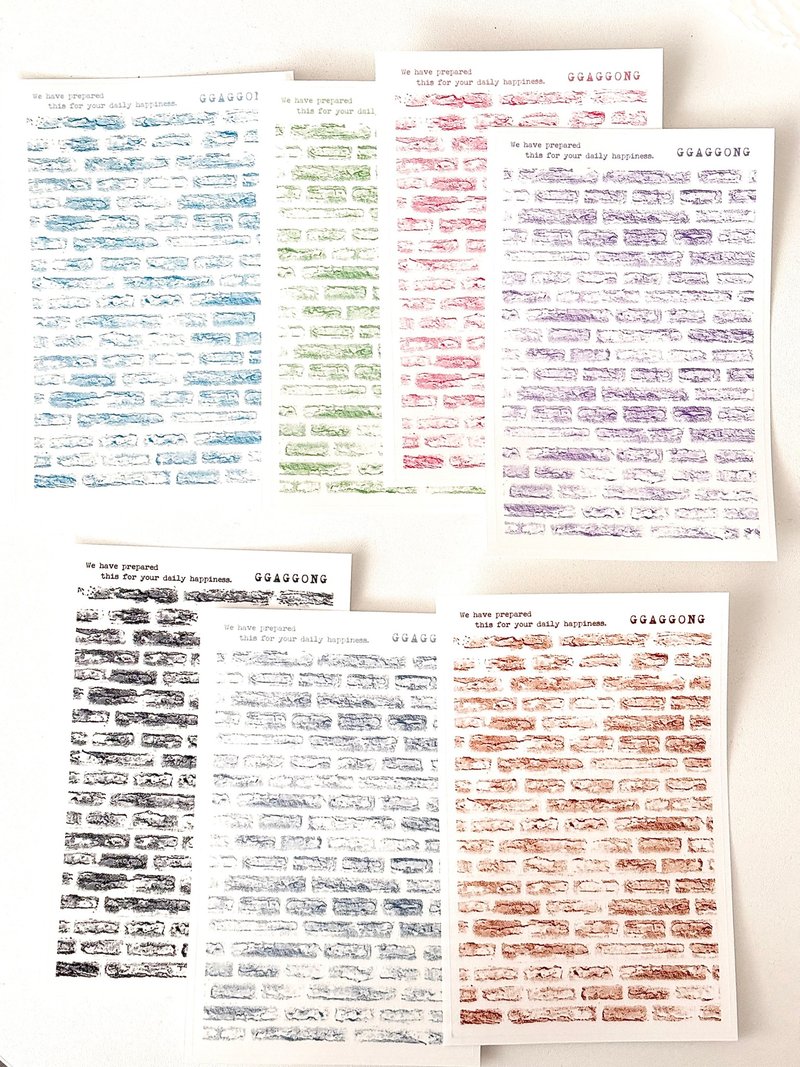 We have prepared
this for your daily happiness. GGAGGON
We have prepared
this for your daily
We have prepared
this for your daily happiness. GGAGGONG
We have prepared
this for your daily happiness. GGAGGONG
We have prepared
this for your daily happiness. GGAGGONG
We have prepared
this for your daily happiness. GGAGG
We have prepared
this for your daily happiness. GGAGGONG